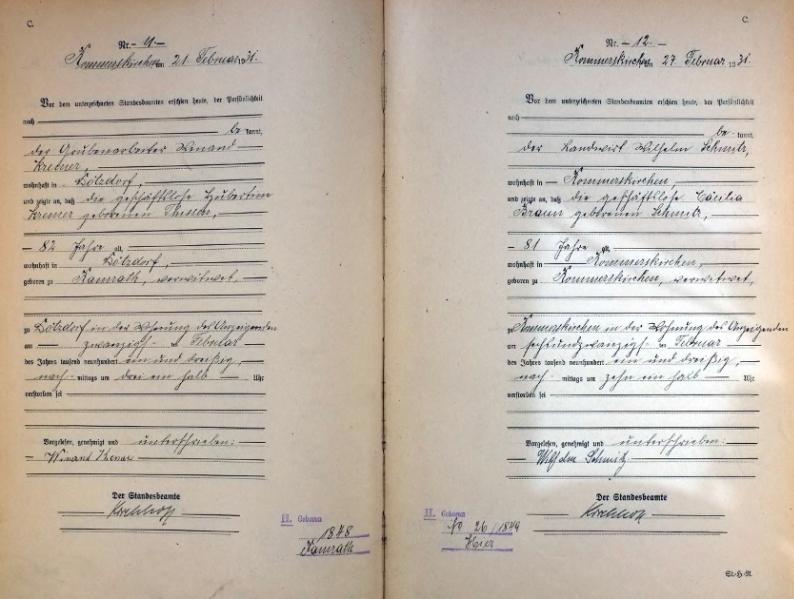 C.
Nr. - 11 -
Rommerskirchen am 21 Februar 1931.
Vor dem unterzeichneten Standesbeamten erschien heute, der Persönlichkeit
nach
be kannt,
der Grubenarbeiter Winand
Kremer,
wohnhaft in Bötzdorf,
und zeigte an, daß die geschäftslose Hubertine
Kremer geborenen
- 82 Jahre alt,
wohnhaft in Bötzdorf,
geboren zu Ramrath, verwitwet,
zu Bötzdorf in der Wohnung des Anzeigenden
am zwanzigs- ten Februar
des Jahres tausend neunhundert ein und dreißig,
nach mittags um drei ein halb Uhr
verstorben sei
Vorgelesen, genehmigt und unterschrieben:
- Winand
Der Standesbeamte
Kirchhoff
II. Geboren
1848
Ramrath
C.
Nr. - 12 -
Rommerskirchen am 27 Februar 1931.
Vor dem unterzeichneten Standesbeamten erschien heute, der Persönlichkeit
nach
be kannt,
der Landwirt Wilhelm Schmitz,
wohnhaft in Rommerskirchen,
und zeigte an, daß die geschäftslose Cäcilia
Braun geborenen Schmitz,
- 81 Jahre alt,
wohnhaft in Rommerskirchen,
geboren zu Rommerskirchen, verwitwet,
Rommerskirchen in der Wohnung des Anzeigenden
am sechsundzwanzigs- ten Februar
des Jahres tausend neunhundert ein und dreißig,
nach mittags um zehn ein halb Uhr
verstorben sei
Vorgelesen, genehmigt und unterschrieben:
- Wilhelm Schmitz
Der Standesbeamte
Kirchhoff
II. Geboren
No 26/1849
Hier
St.-H.-A.